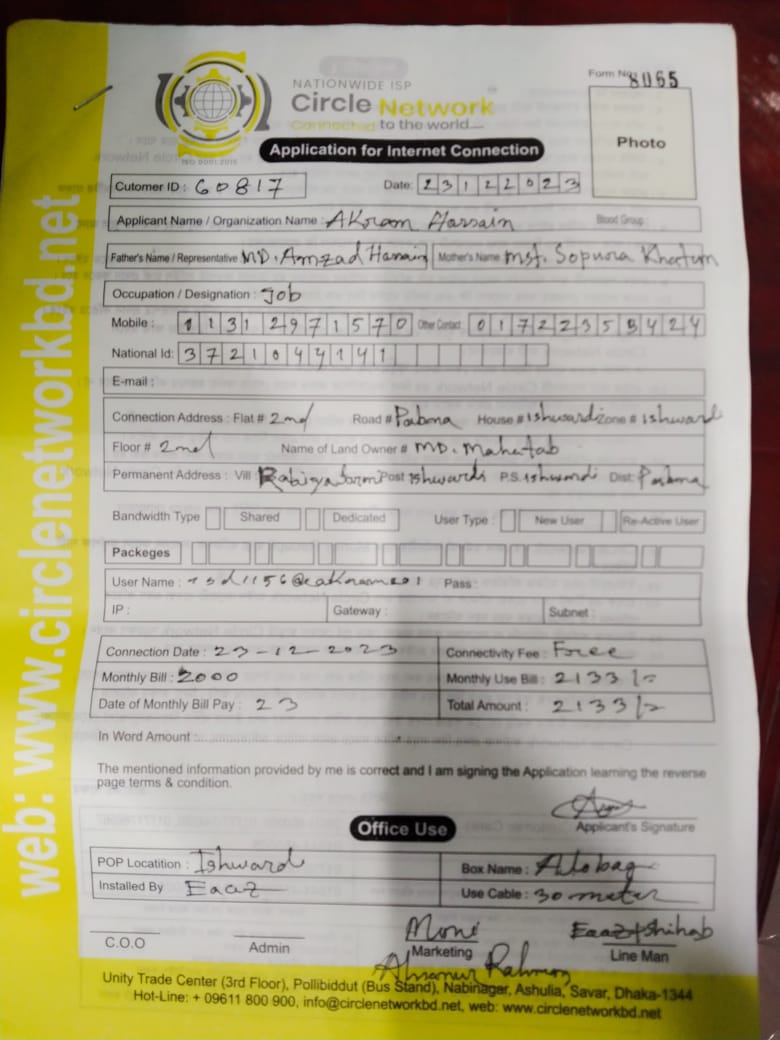 NATIONWIDE ISP
Circle Network
Connected to the world....
ISO 9001:2015
Form No 8065
Photo
Application for Internet Connection
Cutomer ID : 60817 Date: 23122023
Applicant Name / Organization Name : Akram Hossain Blood Group :
Father's Name / Representative MD. Amzad Hossain Mother's Name mst. Sopnora Khatun
Occupation / Designation : Job
Mobile : 11312971570 Other Contact : 01722355424
National Id: 3721044141
E-mail :
Connection Address : Flat # 2nd Road # Pabna House # ishwardi Zone # ishwardi
Floor # 2nd Name of Land Owner # MD. Mahatab
Permanent Address : Vill Post ishwardi P.S. ishwardi Dist: Pabna
Bandwidth Type Shared Dedicated User Type : New User Re-Active User
Packeges
User Name : Pass :
IP : Gateway : Subnet :
Connection Date : 23-12-2023 Connectivity Fee : Free
Monthly Bill : 2000 Monthly Use Bill : 2133/-
Date of Monthly Bill Pay : 23 Total Amount : 2133/-
In Word Amount :
The mentioned information provided by me is correct and I am signing the Application learning the reverse
page terms & condition.
Applicant's Signature
Office Use
POP Locatition : Ishwardi Box Name : Alobag
Installed By Eaaz Use Cable : 30 meter
Moni Eaaz+Shihab
C.O.O Admin Marketing Line Man
Rahman
Unity Trade Center (3rd Floor), Pollibiddut (Bus Stand), Nabinager, Ashulia, Savar, Dhaka-1344
Hot-Line: + 09611 800 900, info@circlenetworkbd.net, web: www.circlenetworkbd.net
web: www.circlenetworkbd.net